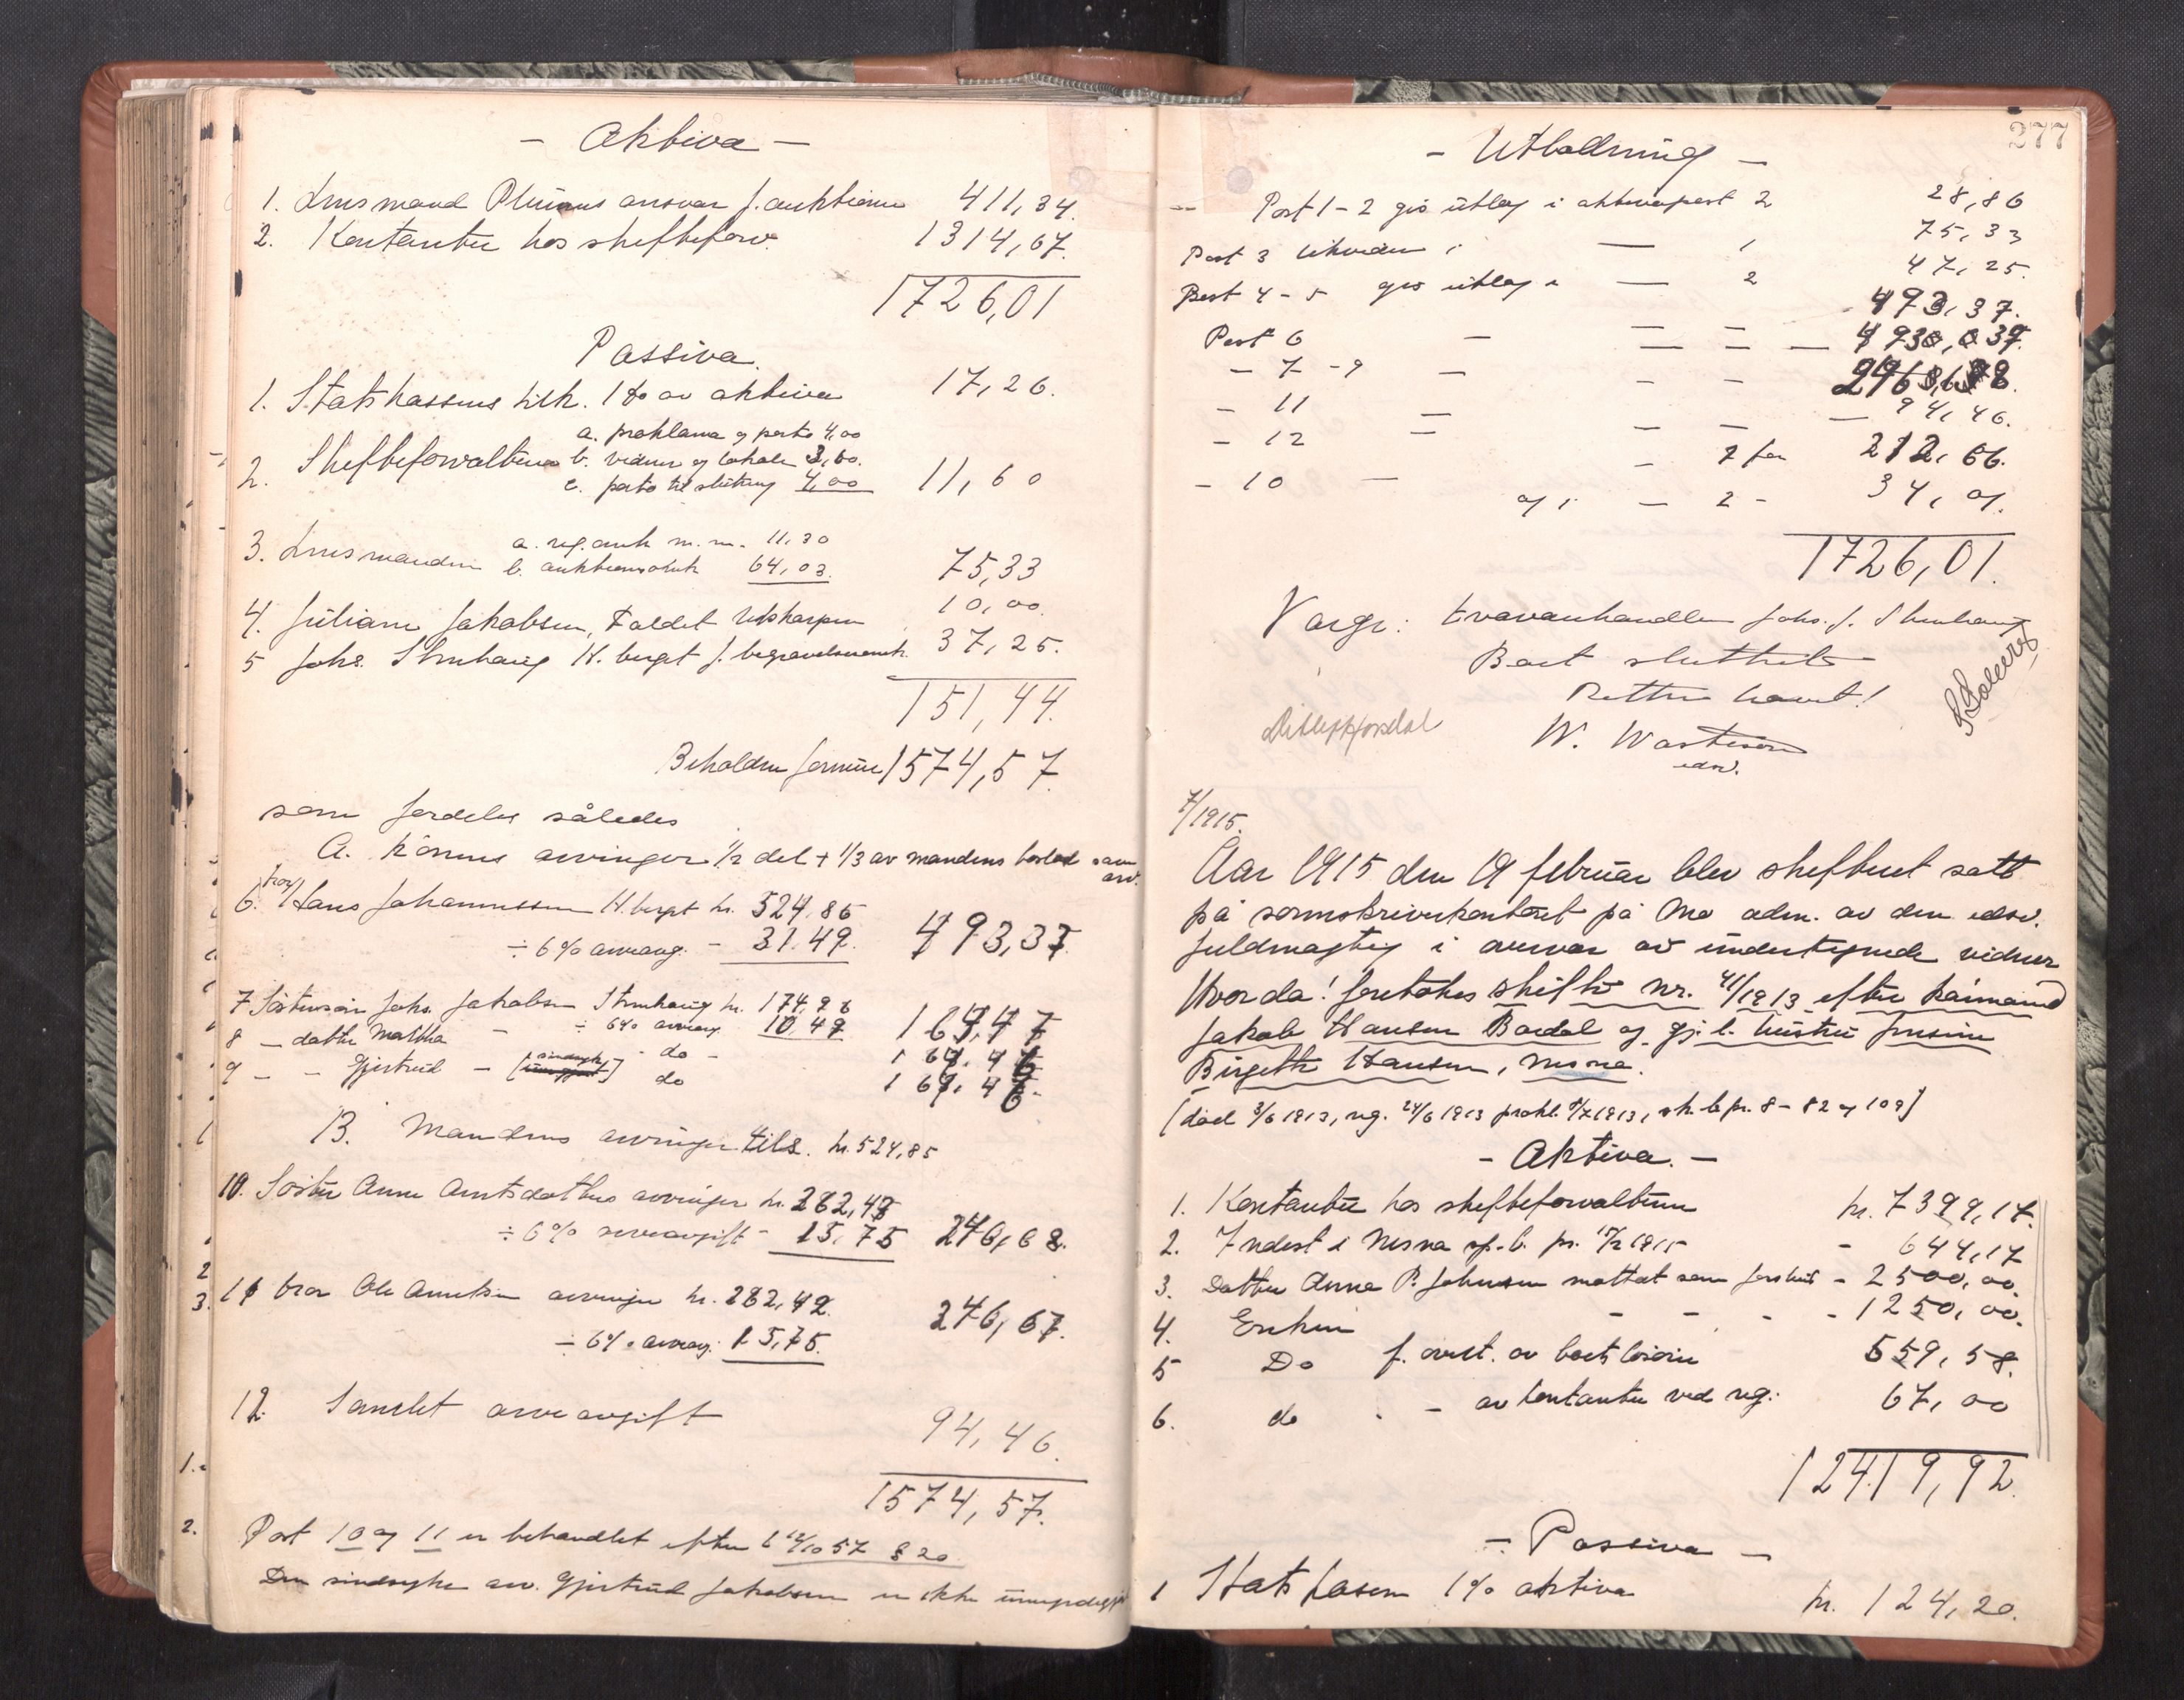 - Aktiva -
1. Lensmand Plünns ansvar f. auktionen 411,34.
2. Kontanter hos skifteforv. 1314,67.
1726,01
Passiva.
1. Statskassens tilk. 1 % av aktiva 17,26.
a. proklama og porto 4,00
2. Skifteforvalteren b. vidner og lokale 3,60. 11,60
c. porto til slutning 4,00
3. Lensmanden a. reg. auk m.m. 11.30
b. auktionsomk 64,03. 75,33
4. Juliane Jakobsen, 10,00.
5 Johs. Stenhaug H. berget f. begravelsesomk. 37,25.
151,44.
Beholden formue 1574,57.
som fordeles således
A. Konens arvinger 1/2 del + 1/3 av mandens boslod som arv.
6. bror Hans Johannessen H.berget kr. 524,86
÷ 6% arveavg. - 31.49. 493,37
7 Søstersøn Johs. Jakobsen Stenhaug kr. 174,96
÷ 6% arveavg. 10,49 164,47
8 - datter Martha - do - 164.46
9 - - Gjertrud - [sindssyk] do 164,46.
B. Mandens arvinger tils. kr. 524,85
10. Søster Anne Arntsdatters arvinger kr. 262,43
÷ 6% arveavgift - 15,75 246,68.
11 bror Ole Arntsen arvinger kr. 262,42.
÷ 6% arveavg. 15,75. 246,67.
12. Samlet arveavgift 94,46.
1574,57.
Post 10 og 11 er behandlet efter l 12/10 57 § 20.
Den sindssyke arv. Gjertrud Jakobsen er ikke umyndiggjort
277
- Utlodning -
Post 1-2 gis utlæg i aktivapost 2 28,86
Post 3 likvideres i — 1 75,33
Post 4-5 gis utlæg i — 2 47,25.
493,37.
Post 6 - — — — 493,37.
- 7 -9 - - -
- 11 - - - - 94,46.
- 12 - - 1 for 212,66.
- 10 - og i - 2 - 34,01.
1726,01.
Varge: Johs. J. Stenhaug
Boet sluttet
Retten hævet!
W. Wasteson
edsv.
7/1915.
Aar 1915 den 19 februar blev skifteret satt
på sorenskriverkontoret på Mo adm. av den edsv.
fuldmægtig i overvær av undertegnede vidner
Hvorda! foretokes skifte nr. 41/1913 efter kårmand
Jakob Hansen Bardal og gj.l. hustru
Birgitte Hansen, Nesna.
[død 3/6 1913, reg. 24/6 1913 prokl. 1/7 1913, sk.b.pr. 8 - 82 og 109]
- Aktiva. -
1. Kontanter hos skifteforvalteren kr. 7399,17.
2. Indest i Nesna sp.b. pr. 15/2 1915 - 644,17
3. Datter Anne P. Johnsen mottat som forskud - 2500,00.
4. Enken - - - - 1250,00.
5 Do f. overt. av boets løsøre 559,58.
6. do - - av kontanter ved reg: 67,00
12419,92.
- Passiva -
1 Statskassen 1% aktiva kr. 124,20.